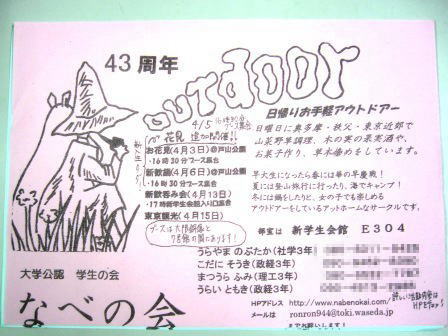 43周年
outdoor
4/5 16時30分 ブース集合
花見 追加開催!!
日帰りお手軽アウトドアー
日曜日に奥多摩・秩父・東京近郊で
山菜野草調理、木の実の果実酒や、
お菓子作り、草木染めをしています。
お花見(4月3日)@戸山公園
・16時30分ブース集合
新歓鍋(4月6日)@戸山公園
・16時30分ブース集合
新歓呑み会(4月13日)
・17時新学生会館入り口集合
東京観光(4月15日)
ブースは大隈銅像と
7号館の間にあります!
早大生になったら春には華の早慶戦!
夏には登山旅行に行ったり、海でキャンプ!
冬には鍋をしたりと、女の子でも楽しめる
アウトドアーをしているアットホームなサークルです。
部室は 新学生会館 E304
うらやま のぶたか(社学3年)
こだに そうき(政経3年)
まつうら ふみ(理工3年)
うらい ともき(政経3年)
大学公認 学生の会
なべの会
HPアドレス http://www.nabenokai.com/
メールは ronron944@toki.waseda.jp
までお願いします!